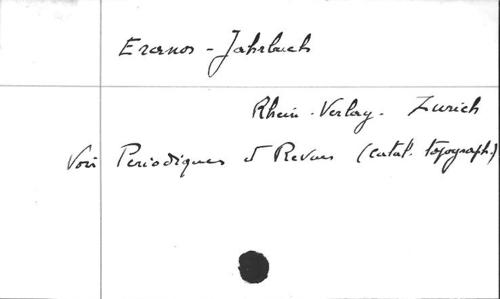 Eranos - Jahrbuch
Rhein-Verlag. Zurich
Voir Périodiques et Revues (catal. topograph.)